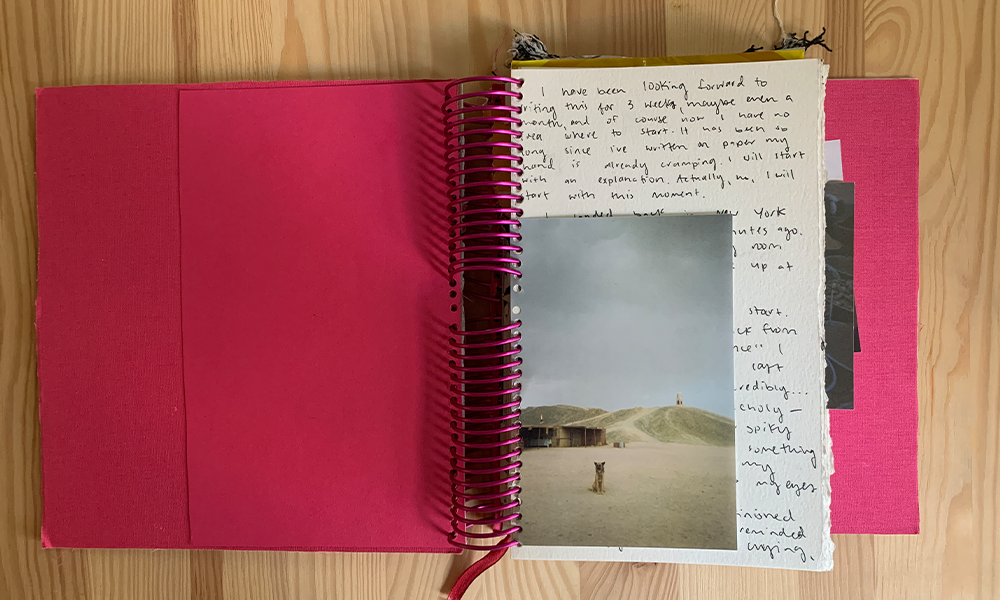 I have been looking forward to
writing this for 3 weeks, maybe even a
month, and of course now I have no
idea where to start. It has been so
long since I've written on paper my
hand is already cramping. I will start
with an explanation. Actually, no, I will
start with this moment.
I landed back in New York
minutes ago.
room
up at
start.
back from
I
raft
incredibly...
melancholy —
spiky
something
my
my eyes
reminded
crying,